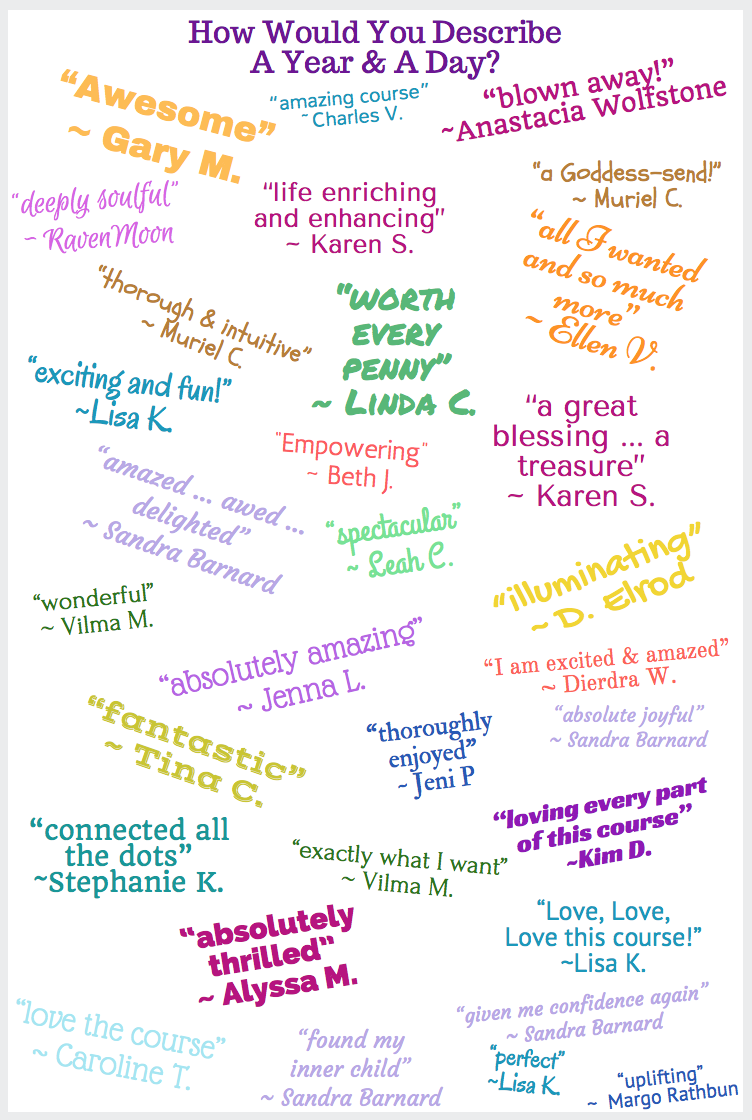 How Would You Describe
A Year & A Day?
“Awesome”
~ Gary M.
“amazing course”
~Charles V.
“blown away!”
~Anastacia Wolfstone
“deeply soulful”
~ RavenMoon
“life enriching
and enhancing”
~ Karen S.
“a Goddess-send!”
~ Muriel C.
“all I wanted
and so much
more”
~ Ellen V.
“thorough & intuitive”
~ Muriel C.
“WORTH
EVERY
PENNY”
~ LINDA C.
“exciting and fun!”
~Lisa K.
"Empowering"
~ Beth J.
“a great
blessing ... a
treasure”
~ Karen S.
“amazed ... awed ...
delighted”
~ Sandra Barnard
“spectacular”
~ Leah C.
“illuminating”
~ D. Elrod
“wonderful”
~ Vilma M.
“absolutely amazing”
~ Jenna L.
“I am excited & amazed”
~ Dierdra W.
“fantastic”
~ Tina C.
“thoroughly
enjoyed”
~ Jeni P
“absolute joyful”
~ Sandra Barnard
“connected all
the dots”
~Stephanie K.
“exactly what I want”
~ Vilma M.
“loving every part
of this course”
~Kim D.
“absolutely
thrilled”
~ Alyssa M.
“Love, Love,
Love this course!”
~Lisa K.
“love the course”
~ Caroline T.
“found my
inner child”
~ Sandra Barnard
“given me confidence again”
~ Sandra Barnard
“perfect”
~Lisa K.
“uplifting”
~ Margo Rathbun